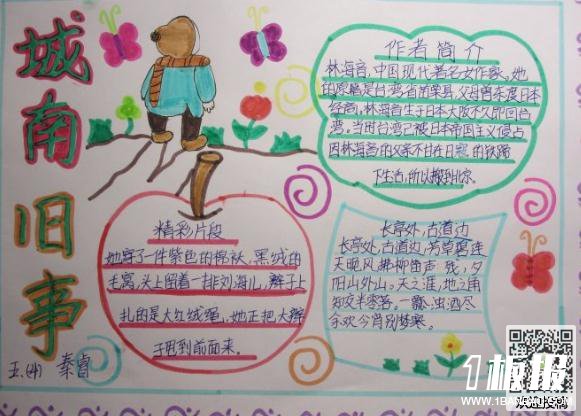 城南旧事
五.(4) 秦睿
作者简介
林海音,中国现代著名女作家。她
的原籍是台湾省苗栗县,父母曾东渡日本
经商,林海音生于日本大阪不久即回台
湾。当时台湾已被日本帝国主义侵占
因林海音的父亲不甘在日寇的铁蹄
下生活,所以搬到北京。
精彩片段
她穿了一件紫色的棉袄,黑绒的
毛窝,头上留着一排刘海儿,辫子上
扎的是大红绒绳,她正把大辫
子甩到前面来。
长亭外,古道边
长亭外,古道边,芳草碧连
天晚风拂柳笛声残,夕
阳山外山。天之涯,地之角
知交半零落。一瓢浊酒尽
余欢今宵别梦寒。
1板报
WWW.1BANBAO.COM